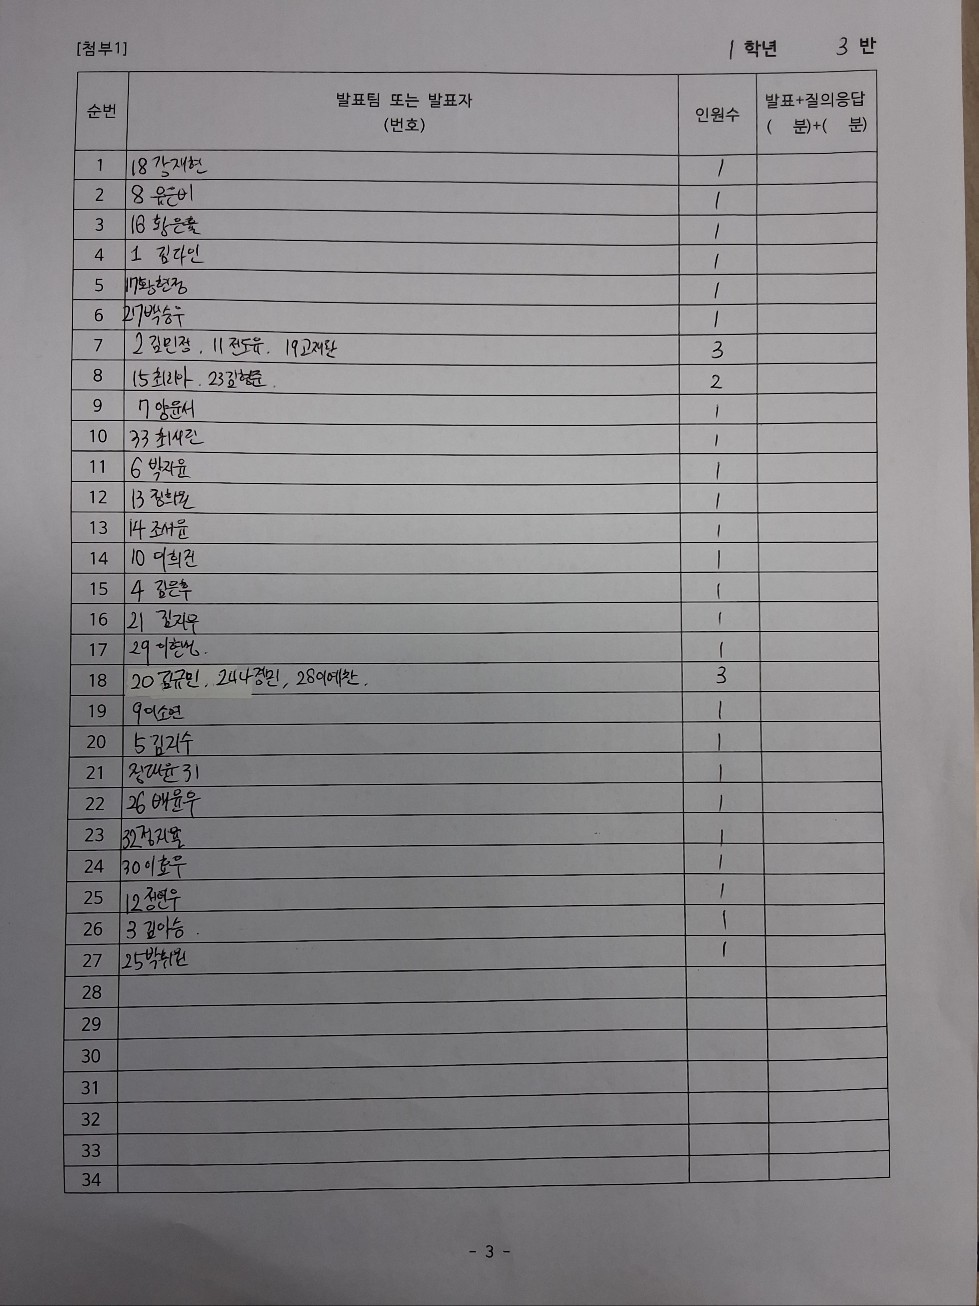 [첨부1] 1 학년 3 반
순번 발표팀 또는 발표자 (번호) 인원수 발표+질의응답 ( 분)+( 분)
1 18 강재현 1
2 8 윤은비 1
3 16 황은율 1
4 1 김다인 1
5 17황현정 1
6 27박승우 1
7 2 김민정, 11 전도유, 19고재완 3
8 15최리아, 23김형준. 2
9 7 양윤서 1
10 33 최세린 1
11 6 박자윤 1
12 13 1
13 14 조서윤 1
14 10 이희진 1
15 4 김은후 1
16 21 김지우 1
17 29 1
18 20 김규민, 24나정민, 28이예찬. 3
19 9이소연 1
20 5 김지수 1
21 정대윤 31 1
22 26 배윤우 1
23 32정지율 1
24 30이호우 1
25 12정현우 1
26 3 김아승. 1
27 25박휘원 1
28
29
30
31
32
33
34
- 3 -